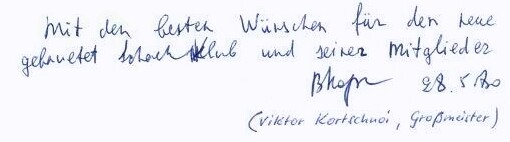 Mit den besten Wünschen für den neue
gebauetet Schach Klub und seiner Mitglieder
28.5.80
(Viktor Kortschnoi, Großmeister)